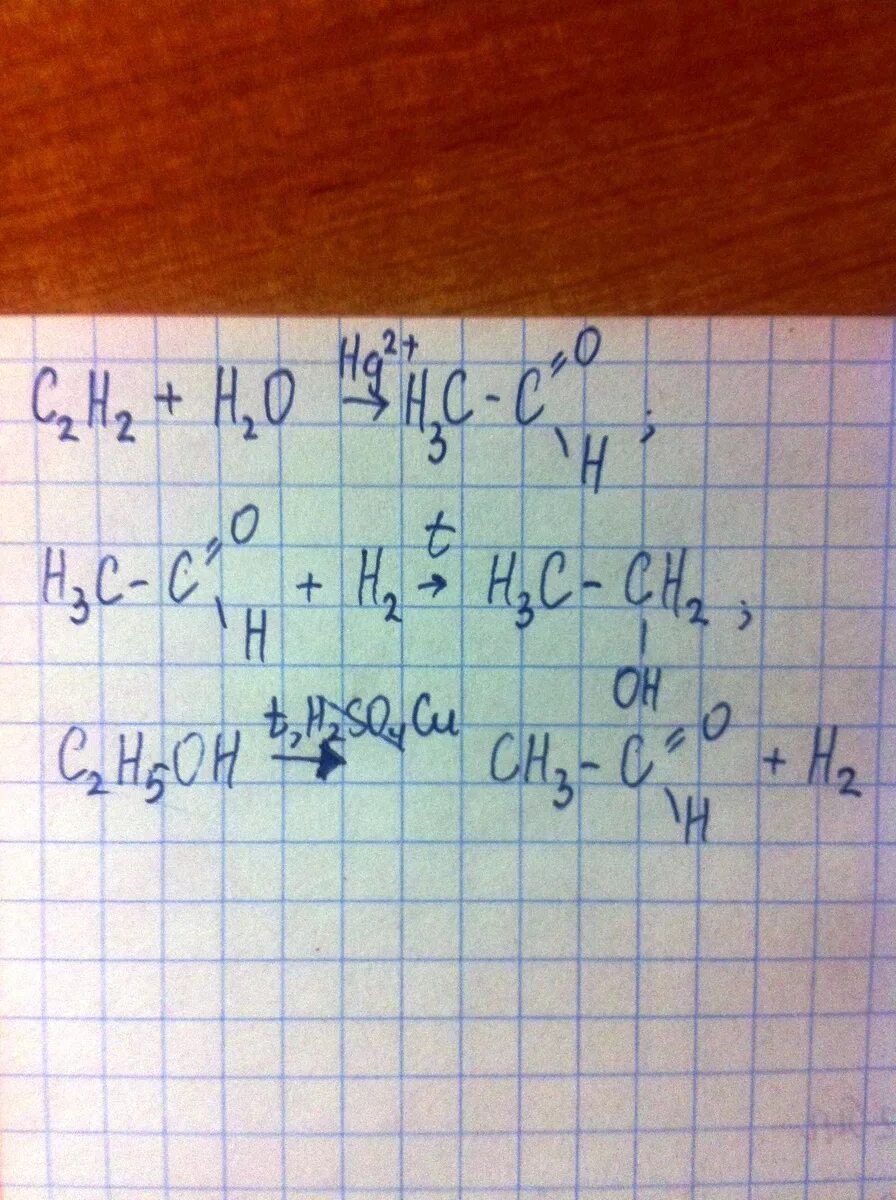 C₂H₂ + H₂O →(Hg²⁺) H₃C - C(=O)(\H) ;
H₃C - C(=O)(\H) + H₂ →(t) H₃C - CH₂(|OH) ;
C₂H₅OH →(t, ~~H₂SO₄~~ Cu) CH₃ - C(=O)(\H) + H₂